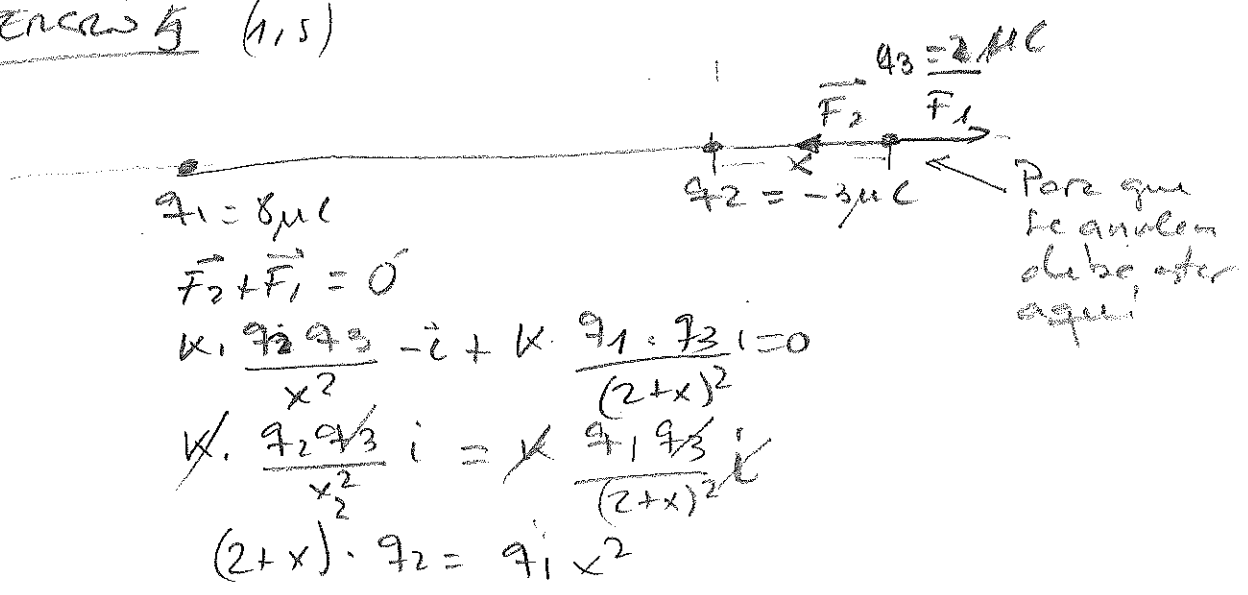 (1,5)
q3 = 2 μC
F2 F1
x
q1 = 8μC
q2 = -3μC
Para que
se anulen
debe estar
aquí
F2 + F1 = 0
K. q2 q3 / x² -i + K. q1 . q3 / (2+x)² i = 0
K. q2 q3 / x² i = K q1 q3 / (2+x)² i
(2+x)² . q2 = q1 x²